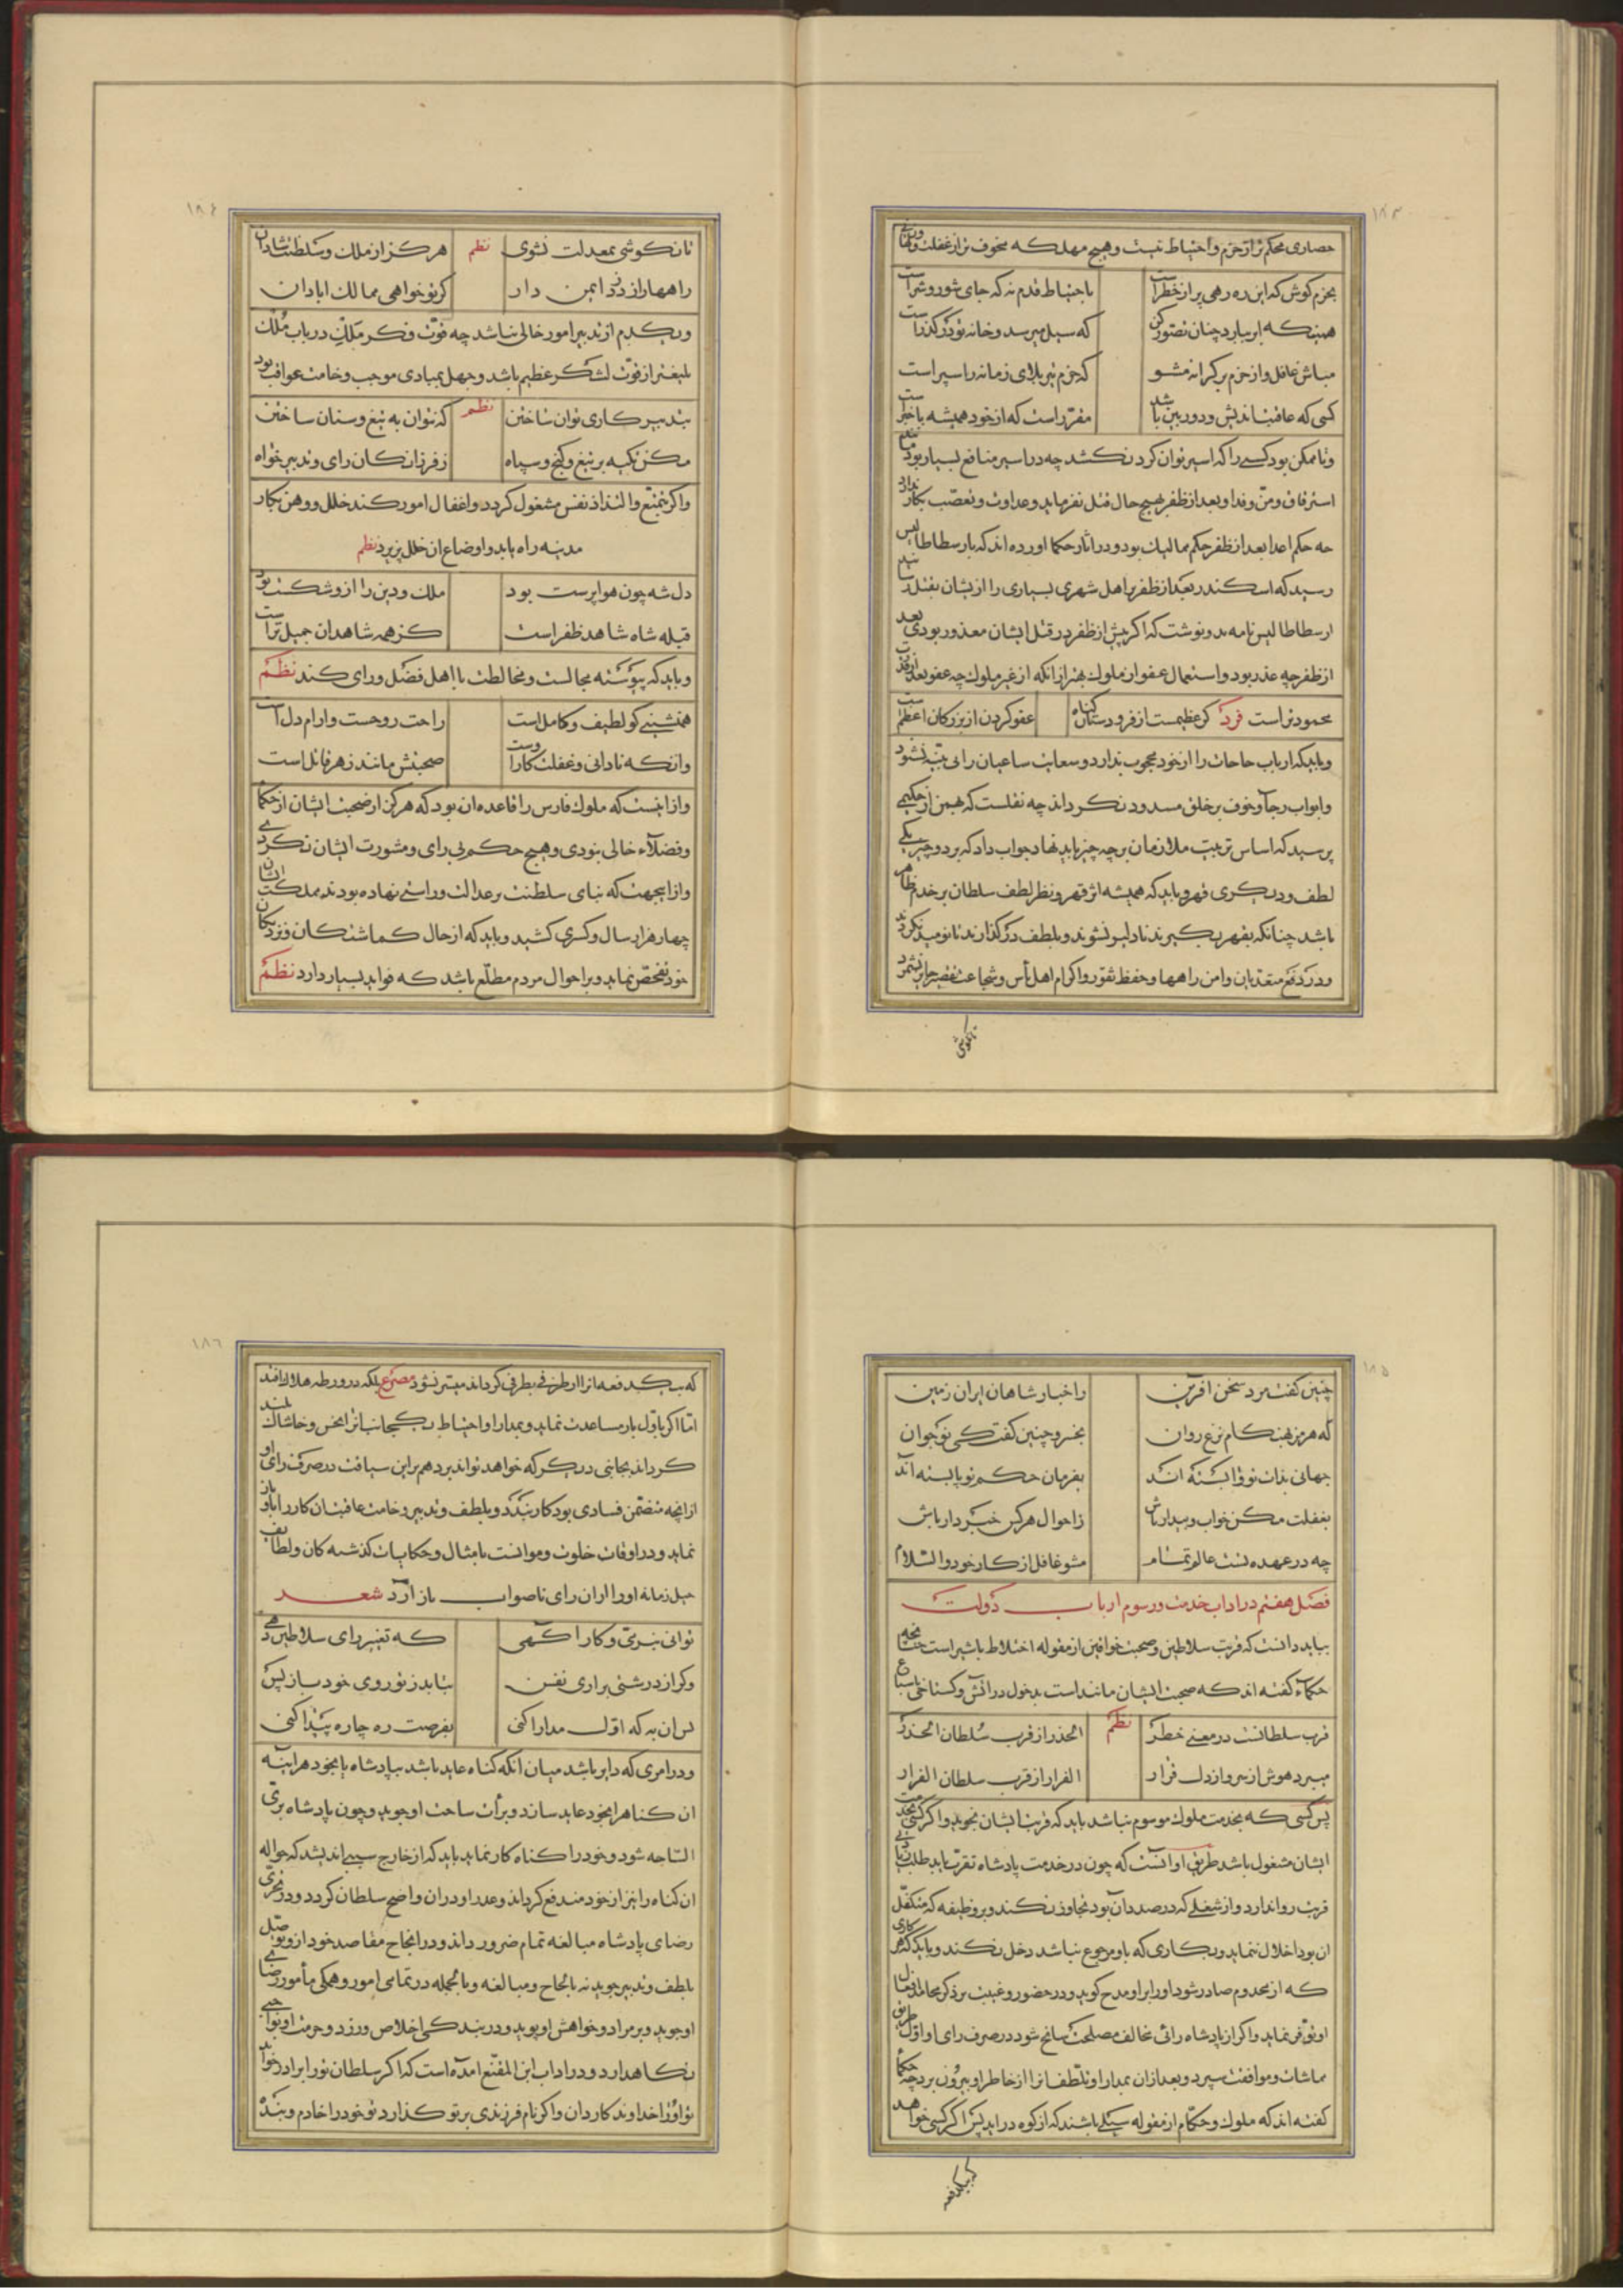 ١٨٣
حصاری محکم تر از حزم و احتیاط نیست و هیچ مهلکه مخوف تر از غفلت و تهاون نی
بحزم کوش که این ره رهی پر از خطر است با احتیاط قدم نه که جای شور و شر است
همینکه ابر ببارد چنان تصور کن که سیل میرسد و خانه تو در گذر است
مباش غافل و از حزم بر کرانه مشو که حزم تیر بلای زمانه را سپر است
کسی که عاقبت اندیش و دوربین باشد مقرر است که از خود همیشه با خبر است
و تا ممکن بود کسی را که اسیر توان کردن نکشد چه در اسیر منافع بسیار بود مثل
استرقاق و من و فدا و بعد از ظفر بهیچ حال قتل نفرماید و عداوت و تعصب بکار ندارد
چه حکم اعدا بعد از ظفر حکم ممالیک بود و در آثار حکما آورده اند که بارسطاطالیس
رسید که اسکندر بعد از ظفر بر اهل شهری بسیاری را از ایشان بقتل رسانید
ارسطاطالیس نامه بدو نوشت که اگر پیش از ظفر در قتل ایشان معذور بودی بعد
از ظفر چه عذر بود و استعمال عفو از ملوک بهتر از آنکه از غیر ملوک چه عفو بعد از قدرت
محمودتر است فرد گر عظیمست از فرودستان گناه عفو کردن از بزرگان اعظم است
و باید که ارباب حاجات را از خود محجوب ندارد و سعایت ساعیان را بی بینه نشنود
و ابواب رجا و خوف بر خلق مسدود نگرداند چه نقلست که بهمن از حکیمی
پرسید که اساس تربیت ملازمان بر چه چیز باید نهاد جواب داد که بر دو چیز یکی
لطف و دیگری قهر و باید که همیشه اثر قهر و نظر لطف سلطان بر خدم ظاهر
باشد چنانکه بقهر بگیرند تا دلیر نشوند و بلطف در گذارند تا نومید نگردند
و در دفع متعدیان و امن راهها و حفظ ثغور و اکرام اهل بأس و شجاعت تقصیر جایز نشمرد
تا نکوشی
١٨٤
تا نکوشی بمعدلت نشوی نظم هرگز از ملک و سلطنت شادان
راهها را ز دزد ایمن دار گر تو خواهی ممالک ابادان
و یکدم از تدبیر امور خالی نباشد چه قوت و فکر ملک در باب ملک
بلیغتر از قوت لشکر عظیم باشد و جهل بمبادی موجب وخامت عواقب بود
بتدبیر کاری توان ساختن نظم که نتوان به تیغ و سنان ساختن
مکن تکیه بر تیغ و گنج و سپاه ز فرزانگان رای و تدبیر خواه
و اگر بتمتع و التذاذ نفس مشغول گردد و اغفال امور کند خلل و وهن بکار
مدینه راه یابد و اوضاع ان خلل پزیرد نظم
دل شه چون هوا پرست بود ملک و دین را ازو شکست بود
قبله شاه شاهد ظفر است کز همه شاهدان جمیل تر است
و باید که پیوسته مجالست و مخالطت با اهل فضل و رای کند نظم
همنشینی کو لطیف و کامل است راحت روحست و ارام دل است
وانکه نادانی و غفلت کار اوست صحبتش مانند زهر قاتل است
و از اینست که ملوک فارس را قاعده ان بود که هرگز از صحبت ایشان از حکما
و فضلاء خالی نبودی و هیچ حکم بی رای و مشورت ایشان نکردی
و از اینجهت که بنای سلطنت بر عدالت و راستی نهاده بودند مملکت ایشان
چهار هزار سال و کسری کشید و باید که از حال گماشتگان و نزدیکان
خود تفحص نماید و بر احوال مردم مطلع باشد که فواید بسیار دارد نظم
١٨٥
چنین گفت مرد سخن آفرین ز اخبار شاهان ایران زمین
که هرمز بهنگام نزع روان بخسرو چنین گفت کی نوجوان
جهانی بذات تو وابسته اند بفرمان حکم تو پا بسته اند
بغفلت مکن خواب و بیدار باش ز احوال هر کس خبردار باش
چه در عهده تست عالم تمام مشو غافل از کار خود والسلام
فصل هفتم در اداب خدمت و رسوم ارباب دولت
بباید دانست که قربت سلاطین و صحبت خواقین از مقوله اختلاط با شیر است چنانچه
حکماء گفته اند که صحبت ایشان مانند است بدخول در آتش و گستاخی با سباع
قرب سلطانست در معنی خطر نظم الحذر از قرب سلطان الحذر
میبرد هوش از سر و از دل قرار الفرار از قرب سلطان الفرار
پس کسی که بخدمت ملوک موسوم نباشد باید که قربت ایشان نجوید و اگر کسی بخدمت
ایشان مشغول باشد طریق او آنست که چون در خدمت پادشاه تقرب یابد طلب زیادتی
قربت روا ندارد و از شغلی که در صدد آن بود تجاوز نکند و بر وظیفه که متکفل
ان بود اخلال ننماید و بکاری که باو مرجوع نباشد دخل نکند و باید که هر کاری
که از مخدوم صادر شود او را بر او مدح گوید و در حضور و غیبت بر ذکر محامد افعال
او توفر نماید و اگر از پادشاه رائی مخالف مصلحت سانح شود در صرف رای او اول طریق
مماشات و موافقت سپرد و بعد از ان بمدارا و تلطف انرا از خاطر او بیرون برد چه حکما
گفته اند که ملوک و حکام از مقوله سیلی باشند که از کوه در اید پس اگر کسی خواهد
که بیکدفعه
١٨٦
که بیکدفعه انرا از طرفی بطرفی گرداند میسر نشود مصرع بلکه در ورطه هلاک افتد
اما اگر باول بار مساعدت نماید و بمدارا و احتیاط یکجانب انرا بخس و خاشاک بلند
گرداند بجانبی دیگر که خواهد تواند برد هم بر این سیاقت در صرف رای او
از انچه متضمن فسادی بود کار بندد و بلطف و تدبیر وخامت عاقبت ان کار را باو باز
نماید و در اوقات خلوت و موانست بامثال و حکایات گذشته گان و لطایف
حیل زمانه او را از ان رای ناصواب باز آرد شعر
توانی بنرمی و کار آگهی که تغییر رای سلاطین دهی
وگر از درشتی براری نفس نتابد ز تو روی خود باز پس
پس ان به که اول مدارا کنی بفرصت ره چاره پیدا کنی
و در امری که دایر باشد میان انکه گناه عاید باشد بپادشاه یا بخود هر آینه
ان گناه را بخود عاید سازد و برأت ساحت او جوید و چون پادشاه بری
الساحه شود و خود را گناه کار نماید باید که از خارج سببی اندیشد که حواله
ان گناه را نیز از خود مندفع گرداند و عذر او در ان واضح سلطان گردد و در تحری
رضای پادشاه مبالغه تمام ضرور داند و در انجاح مقاصد خود ازو توصل
بلطف و تدبیر جوید نه بالحاح و مبالغه و بالجمله در تمامی امور و همگی مأمور رضای
او جوید و بر مراد و خواهش او پوید و در بندگی اخلاص ورزد و حرمت او نواحی
نگاهدارد و در اداب ابن المقفع امده است که اگر سلطان تو را برادر خواند
تو او را خداوندکار دان و اگر نام فرزندی بر تو گذارد تو خود را خادم و بنده